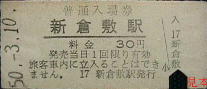 普通入場券
新倉敷駅
料金 30円
発売当日1回限り有効
旅客車内に立入ることはでき
ません。 17 新倉敷駅発行
50.-3.10.
入 17 新倉敷
見本